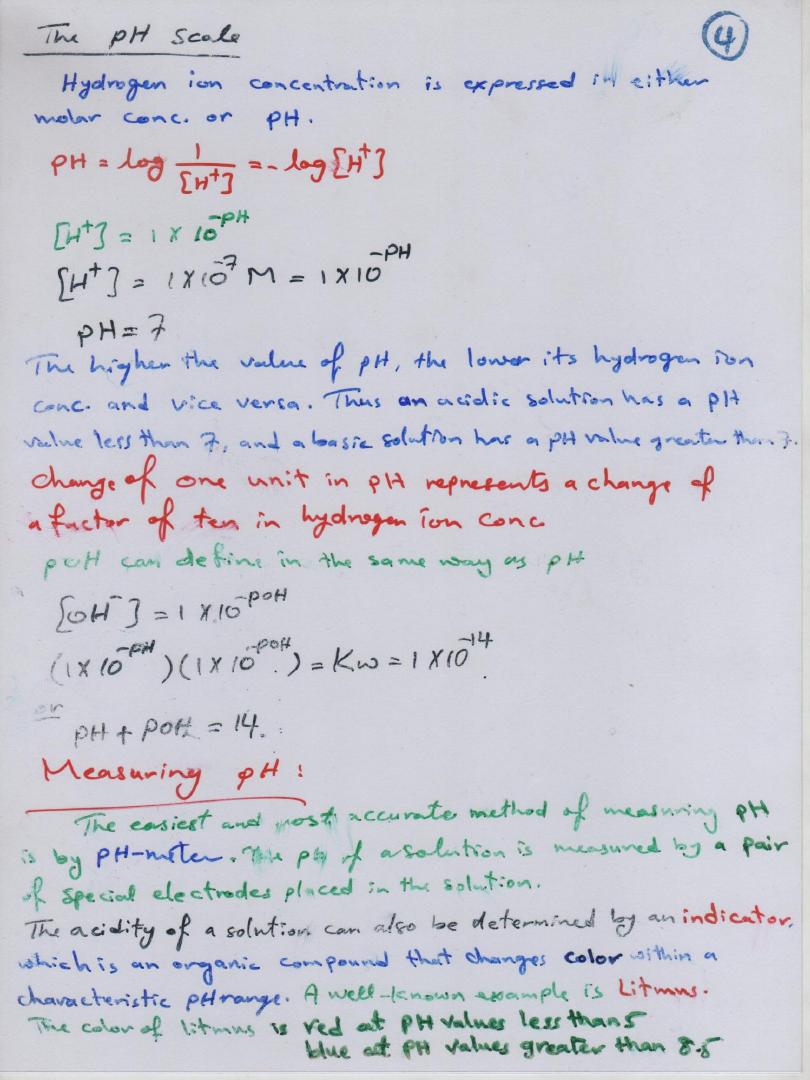 The pH Scale
4
Hydrogen ion concentration is expressed in either
molar conc. or pH.
pH = log 1/[H⁺] = - log [H⁺]
[H⁺] = 1 X 10⁻ᵖᴴ
[H⁺] = 1X10⁻⁷ M = 1X10⁻ᵖᴴ
pH = 7
The higher the value of pH, the lower its hydrogen ion
conc. and vice versa. Thus an acidic solution has a pH
value less than 7, and a basic solution has a pH value greater than 7.
Change of one unit in pH represents a change of
a factor of ten in hydrogen ion conc
pOH can define in the same way as pH
[OH⁻] = 1 X 10⁻ᵖᴼᴴ
(1X10⁻ᵖᴴ)(1X10⁻ᵖᴼᴴ) = Kw = 1X10⁻¹⁴
or
pH + pOH = 14.
Measuring pH :
The easiest and most accurate method of measuring pH
is by pH-meter. The pH of a solution is measured by a pair
of special electrodes placed in the solution.
The acidity of a solution can also be determined by an indicator,
which is an organic compound that changes color within a
characteristic pH range. A well-known example is Litmus.
The color of litmus is red at pH values less than 5
blue at pH values greater than 8.5